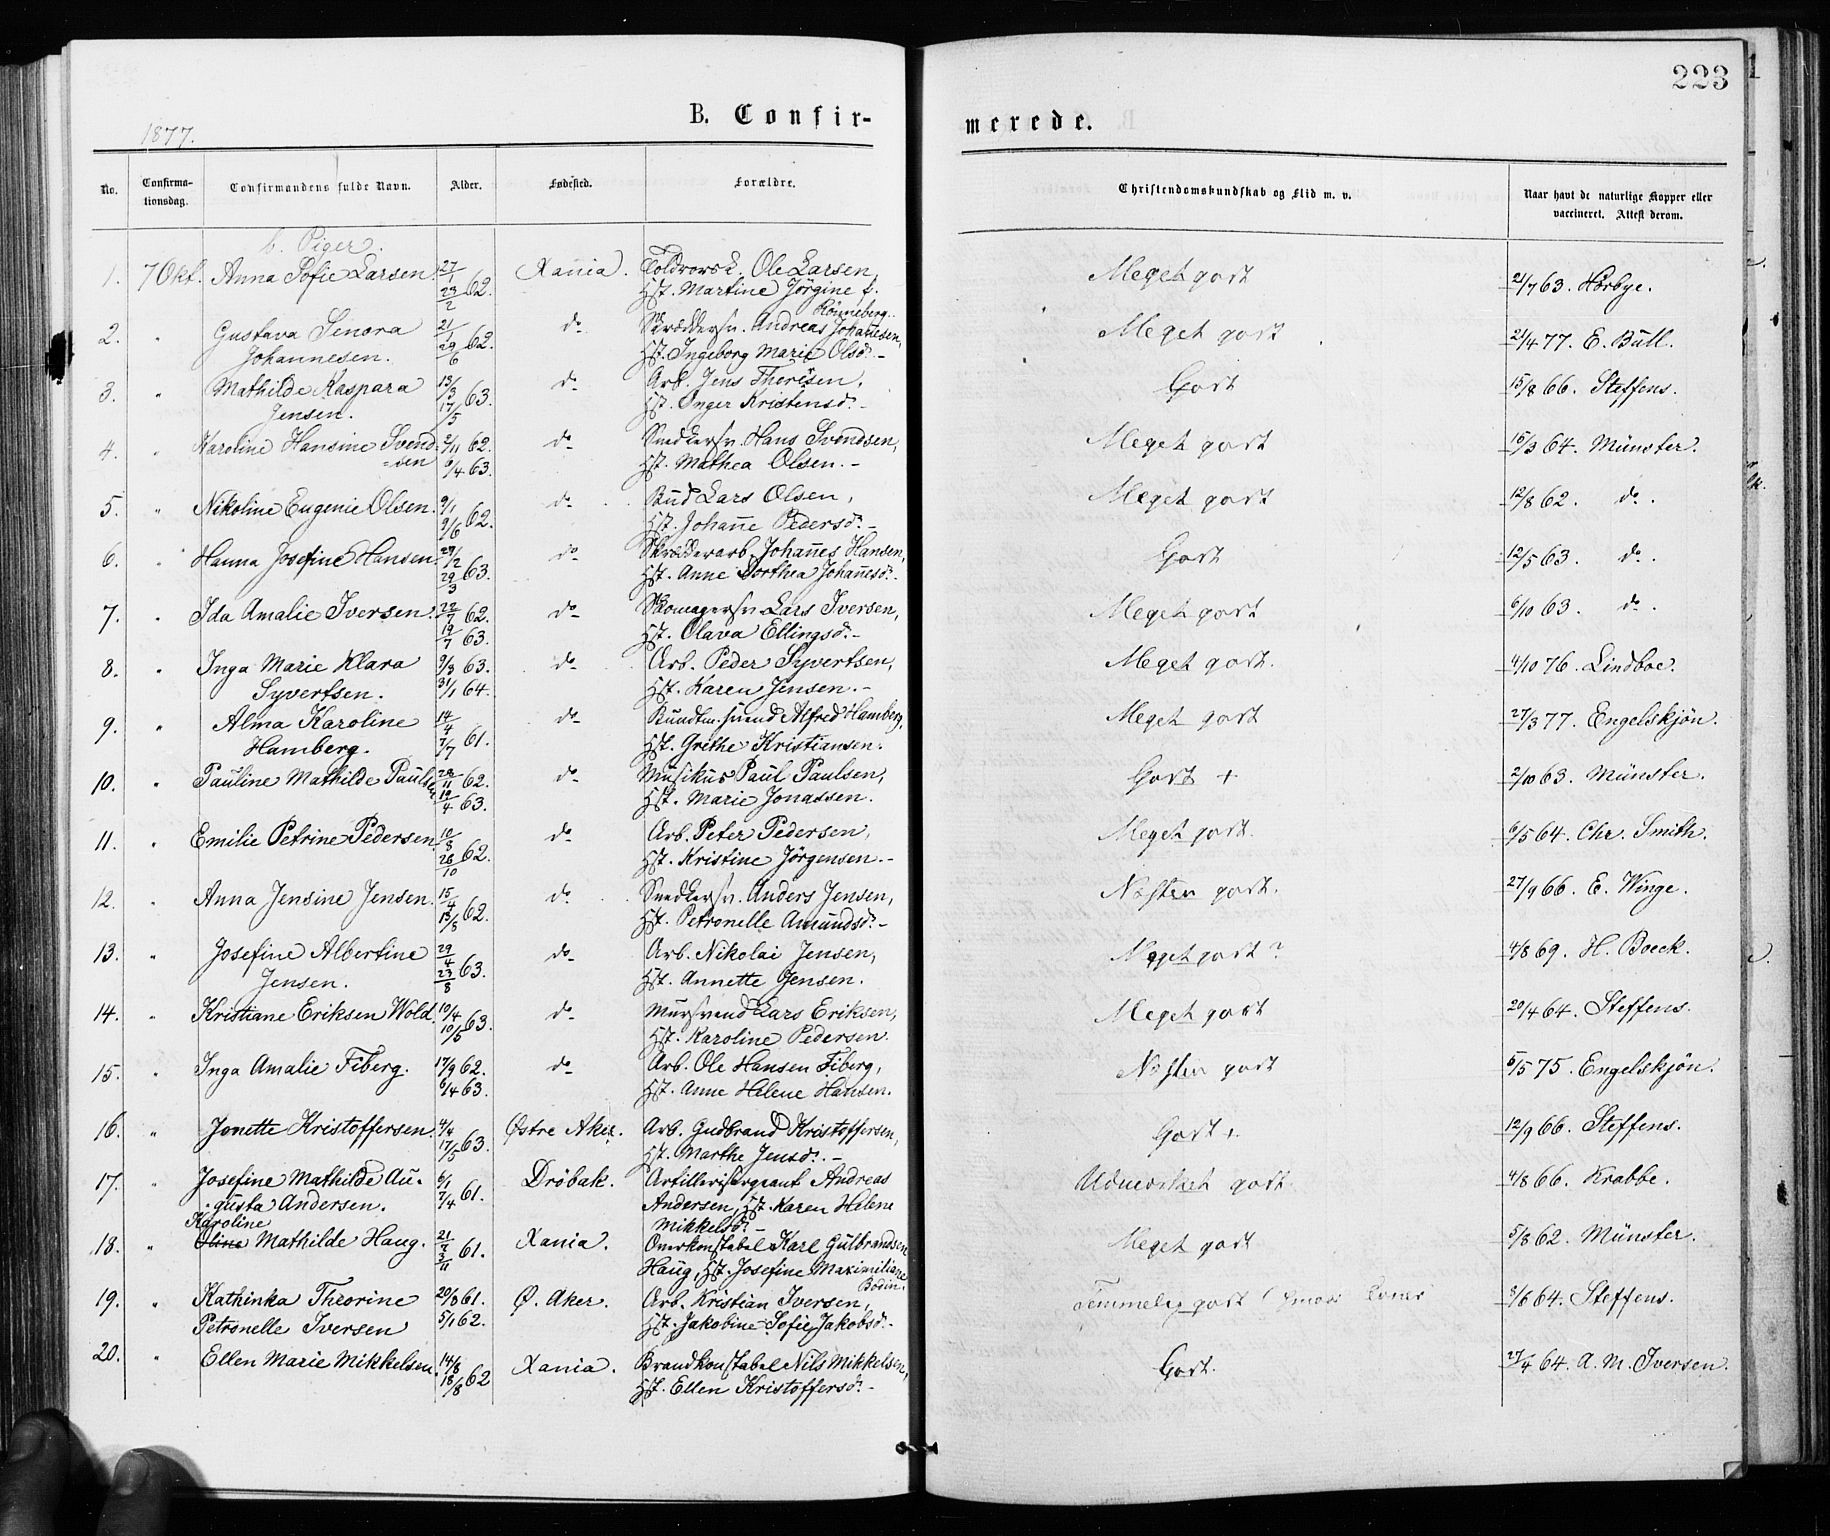 223
B. Confir-
merede.
1877.
No.
Confirma-
tionsdag.
Confirmandens fulde Navn.
Alder.
Fødested.
Forældre.
Christendomskundskab og Flid m. v.
Naar havt de naturlige Kopper eller
vaccineret. Attest derom.
b. Piger.
1. 7 Okt. Anna Sofie Larsen 27/1 23/2 62. Xania. Toldrorsk. Ole Larsen, Meget godt 21/7 63. Hörbye.
Hst. Martine Jörgine f.
Rönneberg.
2. " Gustava Senora 21/1 29/6 62. do Skræddersv. Andreas Johannesen, Meget godt 21/4 77. E. Bull.
Johannesen. Hst. Ingeborg Marie Olsd.
3. " Mathilde Kaspara 13/3 17/5 63. do Arb. Jens Thersen, Godt 15/8 66. Steffens.
Jensen. Hst. Inger Kristensd.
4. " Karoline Hansine Svend- 2/11 62. do Snedkersv. Hans Svendsen, Meget godt 15/3 64. Münster.
sen 6/4 63. Hst. Mathea Olsen.
5. " Nikoline Eugenie Olsen. 9/1 9/6 62. do Bud Lars Olsen, Meget godt 12/8 62. do.
Hst. Johanne Pedersd.
6. " Hanna Josefine Hansen 29/3 63. do Skrædderarb. Johannes Hansen, Godt 12/5 63. do.
Hst. Anne Dorthea Johannesd.
7. " Ida Amalie Iversen. 22/7 62. do Skomagersv. Lars Iversen, Meget godt 6/10 63. do.
19/7 63. Hst. Olava Ellingsd.
8. " Inga Marie Klara 9/3 63. do Arb. Peder Syvertsen, Meget godt. 4/10 76. Lindboe.
Syvertsen. 31/1 64. Hst. Karen Jensen.
9. " Alma Karoline 14/4 7/7 61. do Bundtm.svend Alfred Hamberg, Meget godt 27/3 77. Engelskjön.
Hamberg. Hst. Grethe Kristiansen.
10. " Pauline Mathilde Paulsen 62. do Musikus Paul Paulsen, Godt + 2/10 63. Münster.
19/4 63. Hst. Marie Jonassen.
11. " Emilie Petrine Pedersen 10/8 26/10 62. do Arb. Peter Pedersen, Meget godt. 6/5 64. Chr. Smith.
Hst. Kristine Jörgensen.
12. " Anna Jensine Jensen. 15/4 18/8 62. do Snedkersv. Anders Jensen, Næsten godt. 27/9 66. E. Winge.
Hst. Petronelle Amundsd.
13. " Josefine Albertine 29/4 23/8 63. do Arb. Nikolai Jensen, Meget godt? 4/8 69. H. Boeck.
Jensen. Hst. Annette Jensen.
14. " Kristiane Eriksen Wold. 10/4 10/5 63. do Mursvend Lars Eriksen, Meget godt 20/4 64. Steffens.
Hst. Karoline Pedersen.
15. " Inga Amalie Fiberg. 17/9 62. do Arb. Ole Hansen Fiberg, Næsten godt 6/5 75. Engelskjön.
6/4 63. Hst. Anne Helene Hansen.
16. " Jonette Kristoffersen. 4/4 17/5 63. Østre Aker. Arb. Gudbrand Kristoffersen, Godt +. 12/9 66. Steffens.
Hst. Marthe Jensd.
17. " Josefine Mathilde Au- 6/1 7/4 61. Dröbak. Artillerisergeant Andreas Udmærket godt. 4/8 66. Krabbe.
gusta Andersen. Andersen, Hst. Karen Helene
Mikkelsd.
Karoline
18. " Oline Mathilde Haug. 61. Xania. Overkonstabel Karl Gulbrandsen Meget godt 5/8 62. Münster.
Haug, Hst. Josefine Maximiliane
Bodin.
19. " Kathinka Theorine 20/8 61. Ø. Aker. Arb. Kristian Iversen, Temmelig godt 3/6 64. Steffens.
Petronelle Iversen 5/1 62. Hst. Jakobine Sofie Jakobsd.
20. " Ellen Marie Mikkelsen. 14/8 18/8 62 Xania. Brandkonstabel Nils Mikkelsen, Godt. 27/4 64. A. M. Iversen.
Hst. Ellen Kristoffersd.